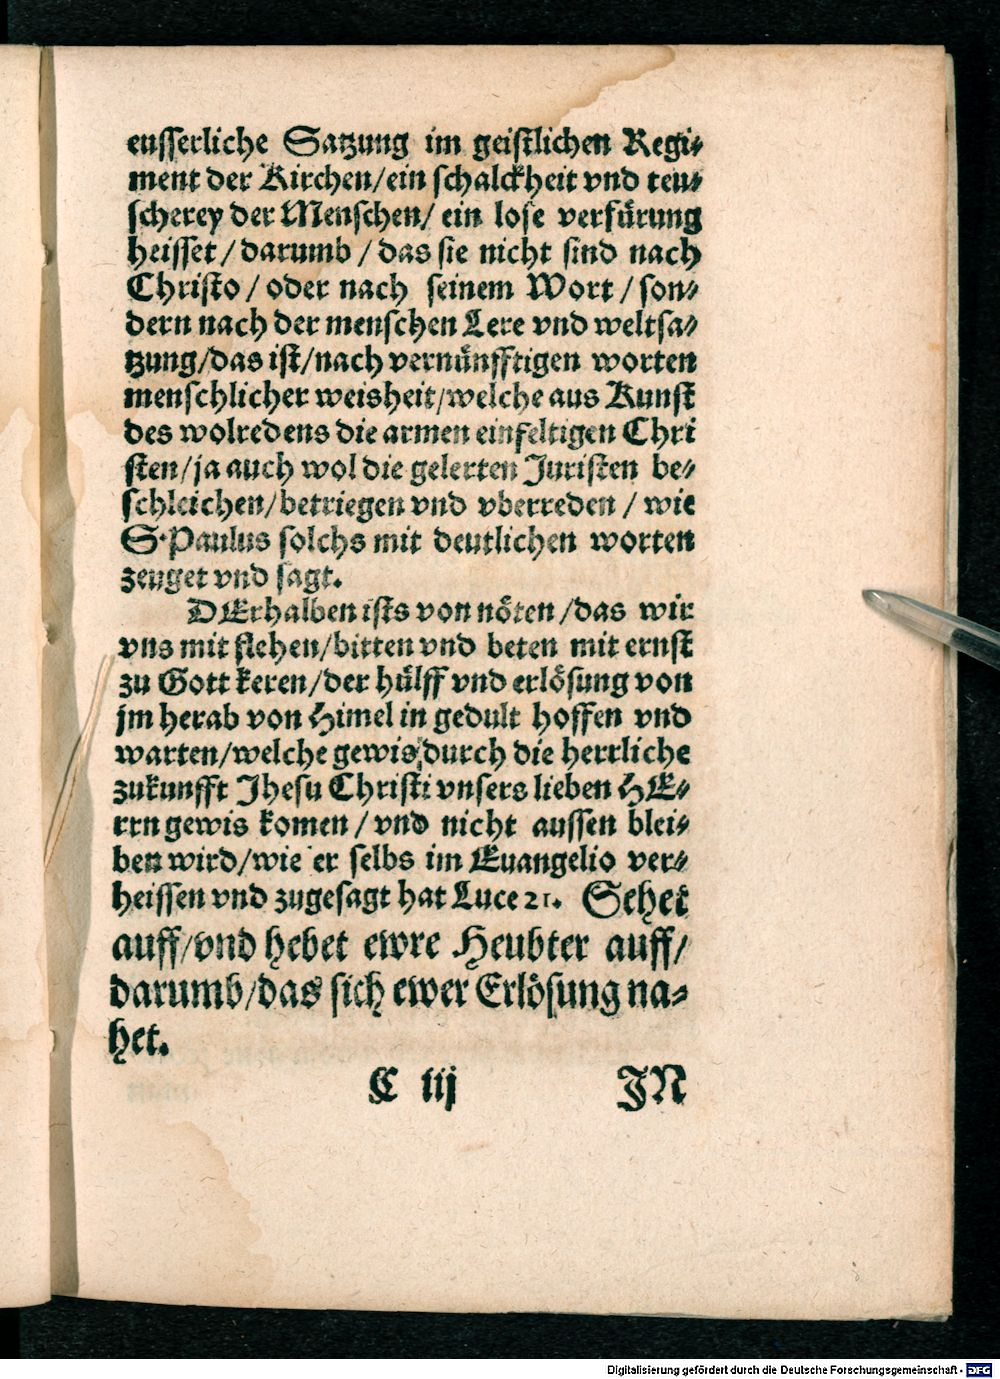 eusserliche Satzung im geistlichen Regi-
ment der Kirchen/ein schalckheit vnd teu-
scherey der Menschen/ ein lose verfürung
heisset/darumb/das sie nicht sind nach
Christo/oder nach seinem Wort/son-
dern nach der menschen Lere vnd weltsa-
tzung/das ist/nach vernünfftigen worten
menschlicher weisheit/welche aus Kunst
des wolredens die armen einfeltigen Chri
sten/ja auch wol die gelerten Juristen be-
schleichen/betriegen vnd vberreden/wie
S. Paulus solchs mit deutlichen worten
zeuget vnd sagt.
DErhalben ists von nöten/das wir
vns mit flehen/bitten vnd beten mit ernst
zu Gott keren/der hülff vnd erlösung von
jm herab von Himel in gedult hoffen vnd
warten/welche gewis durch die herrliche
zukunfft Jhesu Christi vnsers lieben HE-
rrn gewis komen/vnd nicht aussen blei-
ben wird/wie er selbs im Euangelio ver-
heissen vnd zugesagt hat Luce 21. Sehet
auff/vnd hebet ewre Heubter auff/
darumb/das sich ewer Erlösung na-
het.
C iij JN
Digitalisierung gefördert durch die Deutsche Forschungsgemeinschaft - DFG